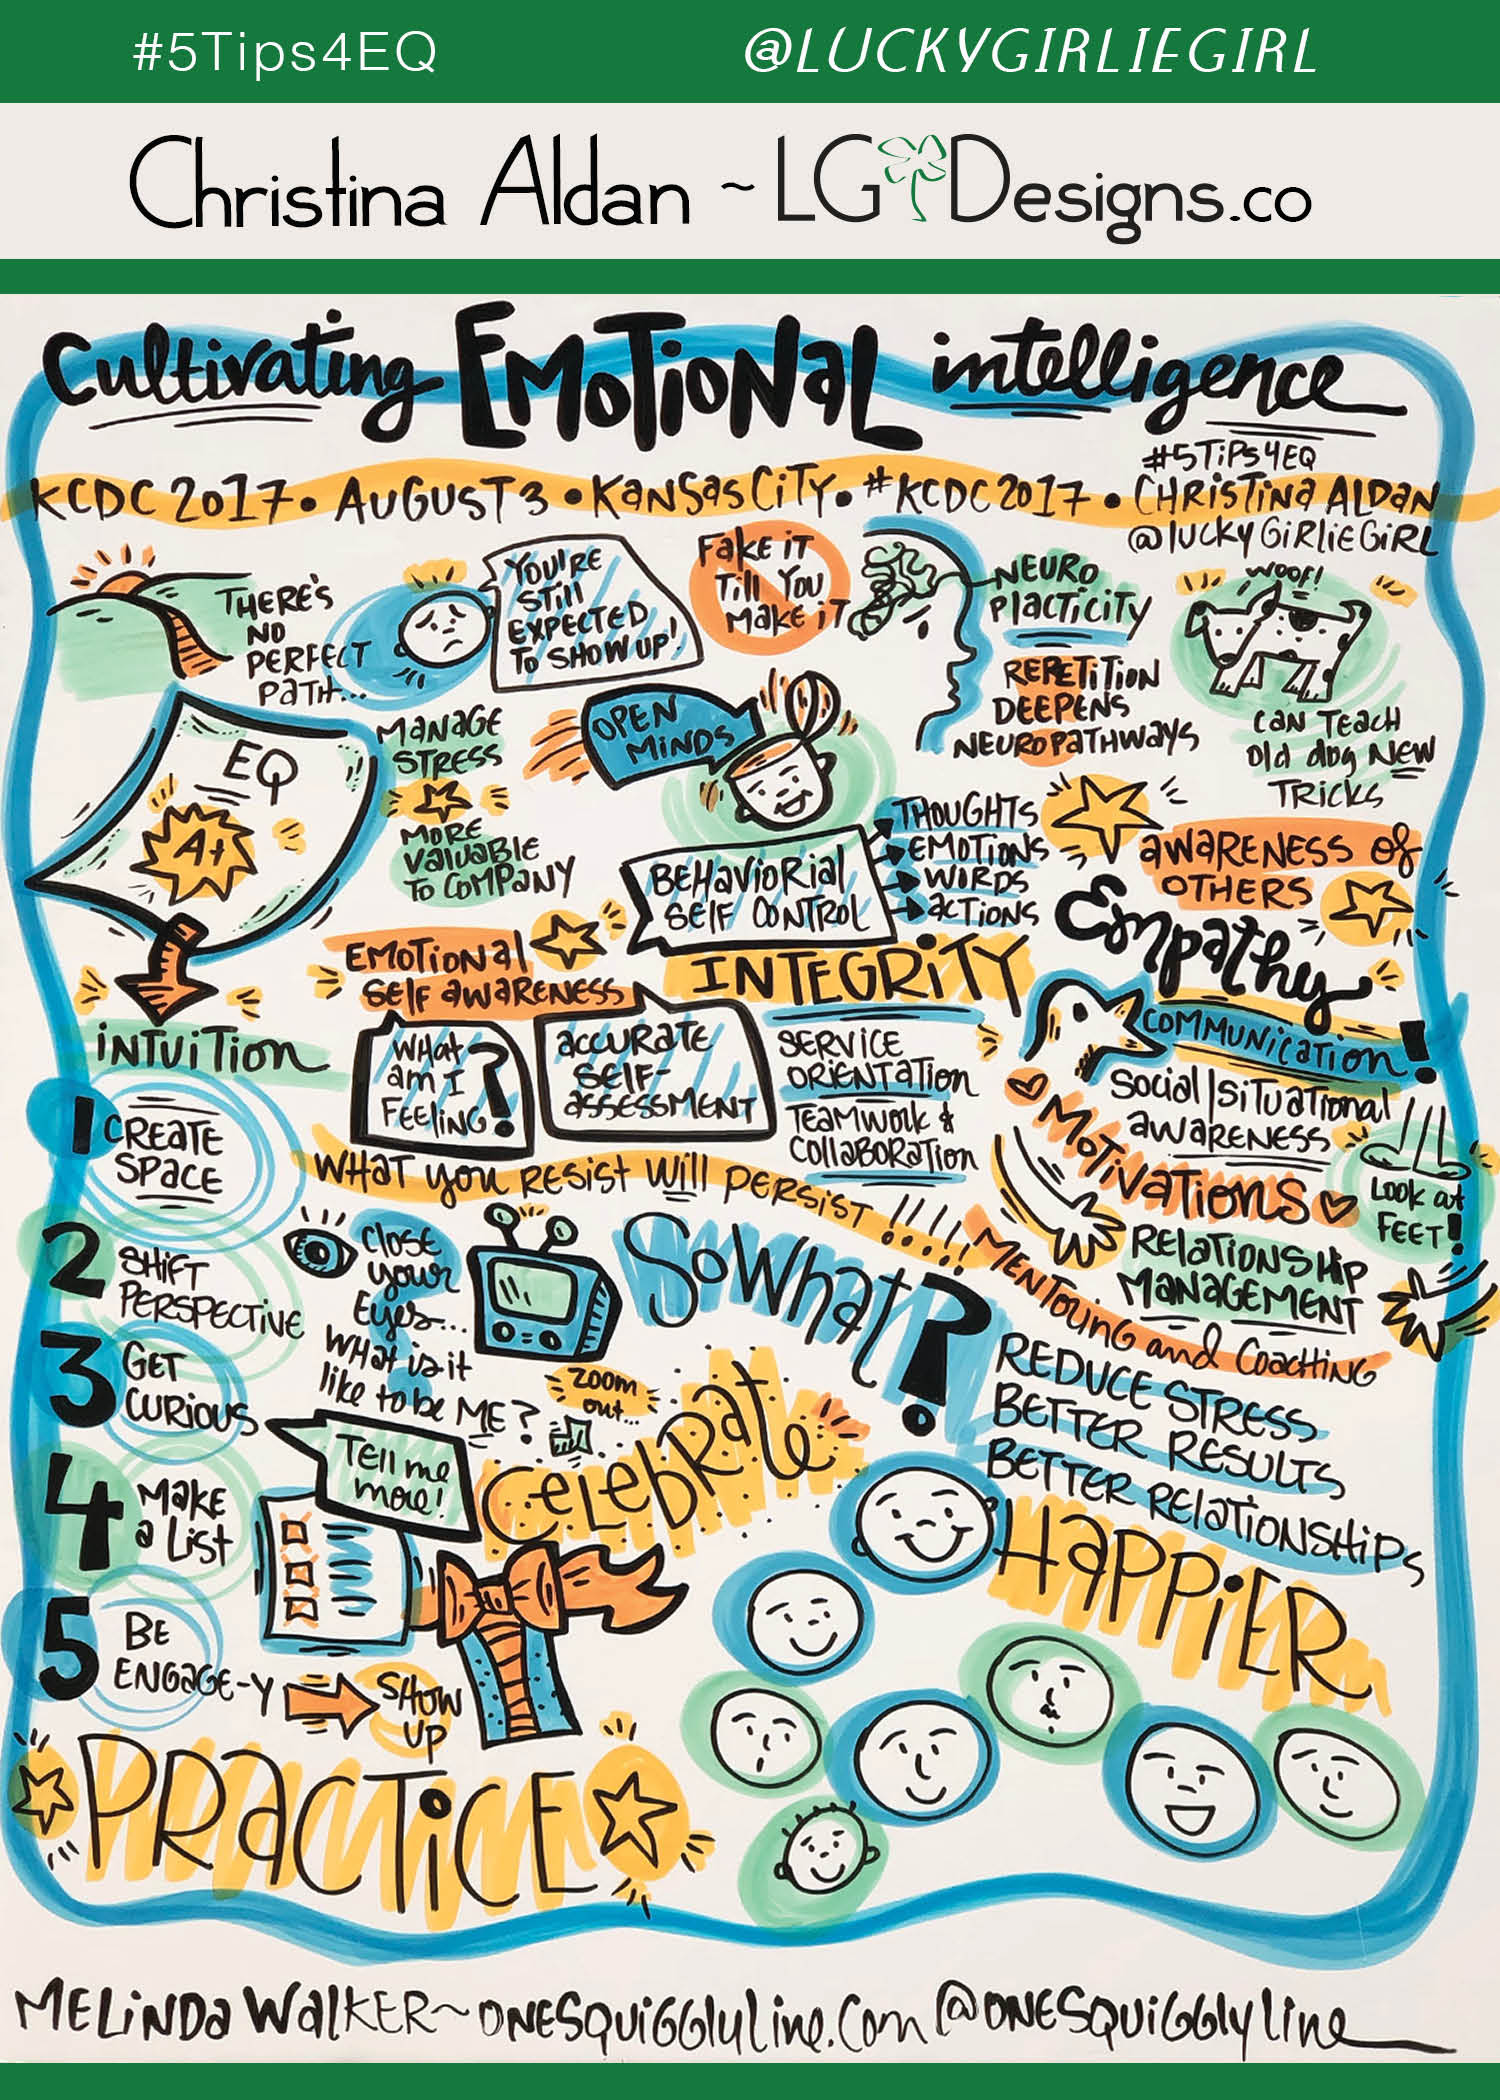 #5Tips4EQ
@LUCKYGIRLIEGIRL
Christina Aldan ~ LG Designs.co
Cultivating EMOTIONAL intelligence
#5TiPs4EQ
KCDC 2017 • AUGUST 3 • KANSAS CiTY • #KCDC2017 • CHRISTINA ALDAN
@lucky GiRLiE GiRL
THERE'S
NO
PERFECT
PATH...
YOU'RE
STill
EXPECTED
TO SHOW UP!
FAKE iT
Till You
MAKE iT
NEURO
PlACTiCiTY
REPETiTiON
DEEPENS
NEUROPATHWAYS
WOOF!
CAN TEACH
Old dog NEW
TRICKS
EQ
A+
MANAGE
STRESS
MORE
VALUABLE
TO COMPANY
OPEN
MINDS
BEHAViORiAl
SELF CONTROL
THOUGHTS
EMOTIONS
WORDS
ACTIONS
AWARENESS of
OTHERS
Empathy
EMOTIONAL
SELF AWARENESS
INTEGRITY
iNTUiTION
WHAT
am I
FEELING?
ACCURATE
SELF-
ASSESSMENT
SERVICE
ORIENTATION
TEAMWORK &
COllABORATION
COMMUNICATION!
SOCIAL|SITUATIONAL
AWARENESS
MOTIVATIONS
LOOK at
FEET!
RELATIONSHIP
MANAGEMENT
MENTORING and COACHING
1 CREATE
SPACE
WHAT YOU RESIST WILL PERSIST!!!!!!
2 SHIFT
PERSPECTIVE
Close
your
Eyes...
WHAT is it
like to be ME?
SO WHAT?
3 GET
CURIOUS
ZOOM
out...
CELEBRATE
REDUCE STRESS
BETTER RESULTS
BETTER RELATIONSHIPS
HAPPIER
Tell me
more!
4 MAKE
a LIST
5 BE
ENGAGE-Y
SHOW
UP
PRACTICE
MELINDA WALKER~ONESQUIGGLYLINE.COM @ONESQUIGGLYLINE